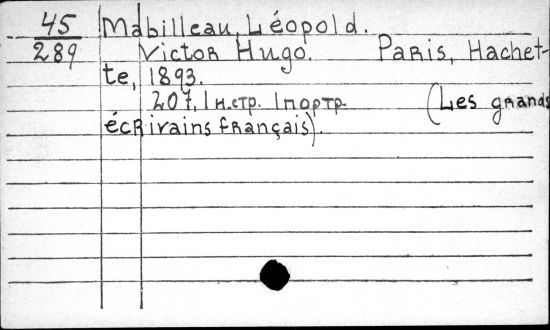 45 Mabilleau, Léopold.
289 Victor Hugo. Paris, Hachet-
te, 1893.
207, 1 н.стр. 1 портр. (Les grands
écrivains français).